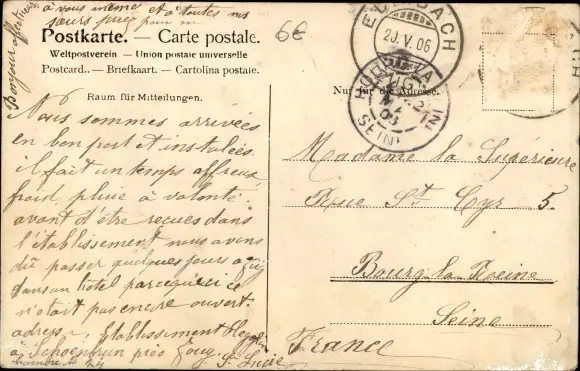 à vous même et à toutes nos
sœurs
Bonjour affectueux
6€
Postkarte. — Carte postale.
Weltpostverein — Union postale universelle
Postcard.. — Briefkaart. — Cartolina postale.
Raum für Mitteilungen.
Nur für die Adresse.
BACH
20.V.06
SEINE
Nous sommes arrivées
en bon port et instalées
il fait un temps affreux
froid, pluie à volonté.
avant d'être reçues dans
l'établissement nous avons
dû passer quelques jours a Zug
dans un hotel parceque ce
n'était pas encore ouvert.
adresse, Etablissement
à Schoenbrun près Zoug
Sr Lucie
Madame la Supérieure
Rue St Cyr 5.
Bourg la Reine
Seine
France